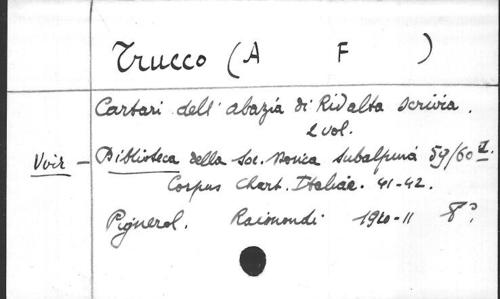 Trucco (A F )
Cartari dell' abazia di Rivalta Scrivia.
2 vol.
Voir - Biblioteca della Soc. Storica subalpina 59/60 I.
Corpus Chart. Italiae. 41-42.
Pignerol. Raimondi 1910-11 8°